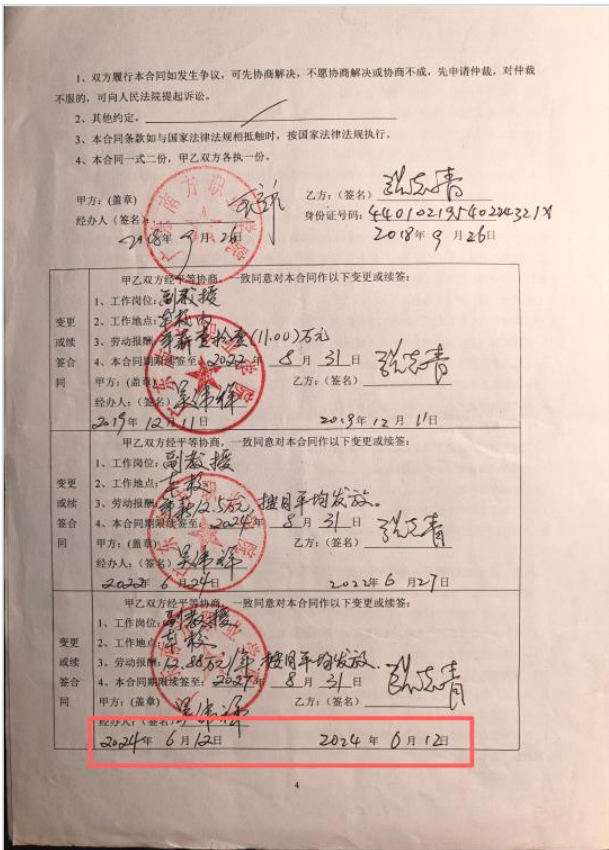 1、双方履行本合同如发生争议，可先协商解决，不愿协商解决或协商不成，先申请仲裁，对仲裁
不服的，可向人民法院提起诉讼。
2、其他约定，
3、本合同条款如与国家法律法规相抵触时，按国家法律法规执行。
4、本合同一式二份，甲乙双方各执一份。
甲方：(盖章) 乙方：(签名) 张志青
经办人（签名）： 身份证号码：
2018年 9 月 26日 2018年 9 月 26日
变更或续签合同
甲乙双方经平等协商，一致同意对本合同作以下变更或续签：
1、工作岗位：副教授
2、工作地点：本校内
3、劳动报酬：年薪壹拾壹(11.00)万元
4、本合同期限续签至：2022年 8 月 31 日
甲方：(盖章) 乙方：(签名) 张志青
经办人：(签名) 吴伟锋
2019年 12月11日 2019年 12 月 11日
变更或续签合同
甲乙双方经平等协商，一致同意对本合同作以下变更或续签：
1、工作岗位：副教授
2、工作地点：本校
3、劳动报酬：年薪12.5万元，按月平均发放。
4、本合同期限续签至：2024年 8 月 31 日
甲方：(盖章) 乙方：(签名) 张志青
经办人：(签名)
2022年 6 月24日 2022年 6 月27日
变更或续签合同
甲乙双方经平等协商，一致同意对本合同作以下变更或续签：
1、工作岗位：副教授
2、工作地点：本校
3、劳动报酬：12.88万元/年 按月平均发放.
4、本合同期限续签至：2027年 8 月 31 日
甲方：(盖章) 乙方：(签名) 张志青
经办人：(签名)
2024年 6 月12日 2024 年 6 月 12日
4